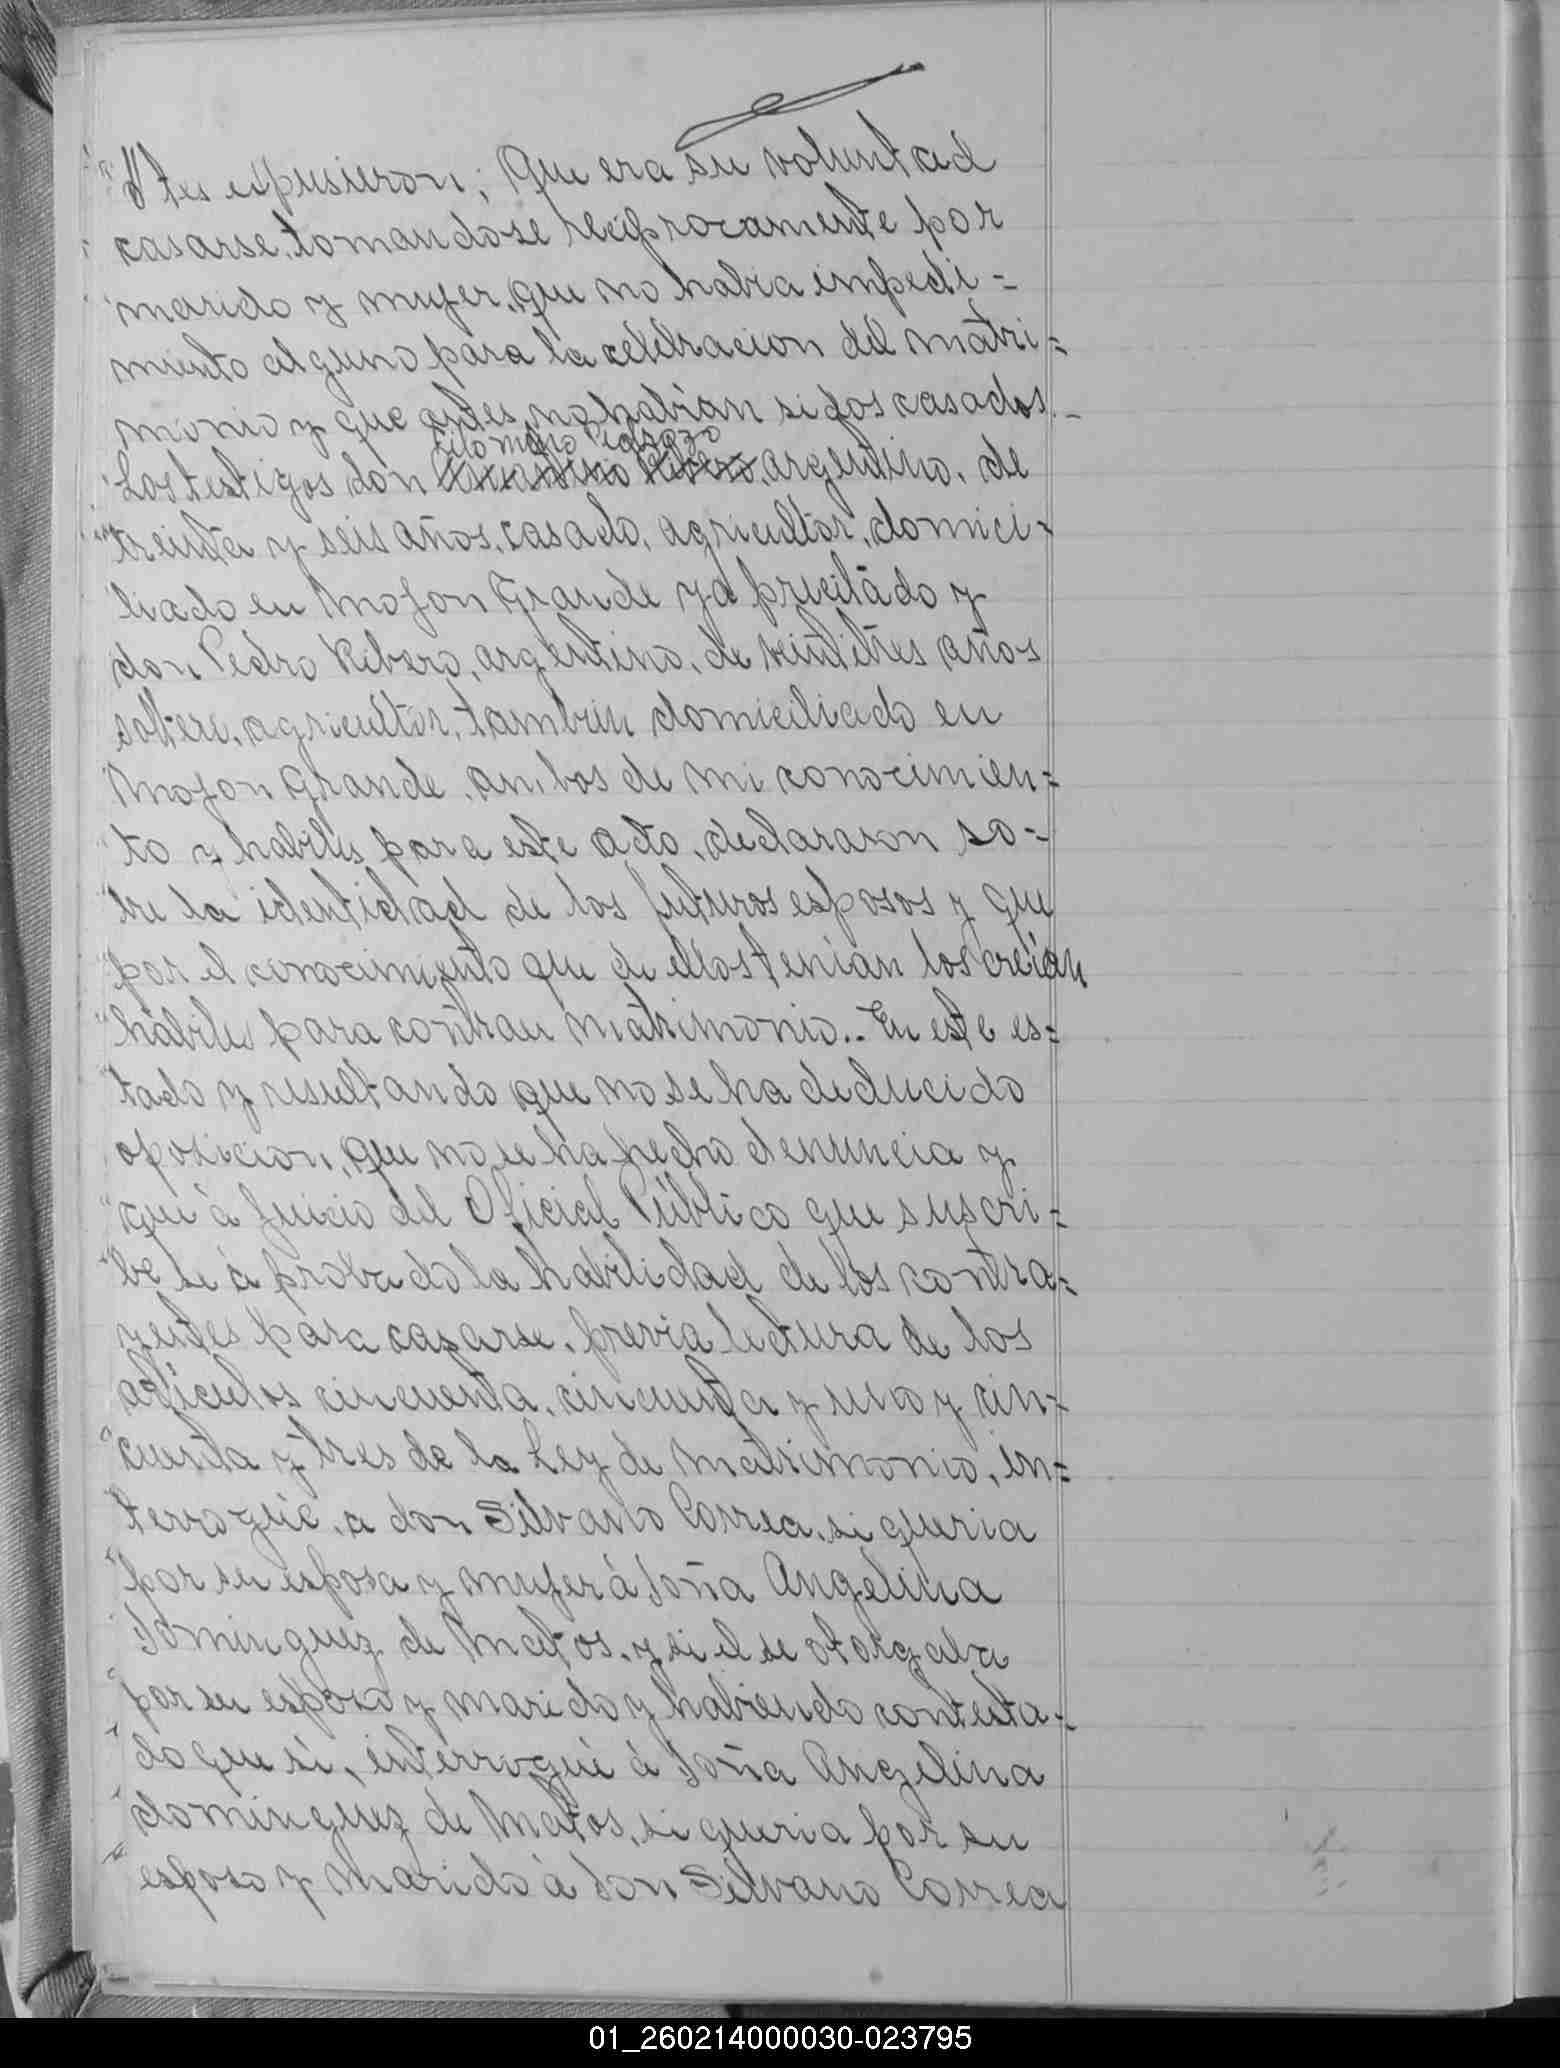 tes espusieron; Que era su voluntad
casarse, tomandose reciprocamente por
marido y mujer, que no habia impedi=
miento alguno para la celebracion del matri=
monio y que antes no habian sidos casados.
Filomeno Pedrozo
Los testigos don Ribero, argentino, de
treinta y seis años, casado, agricultor, domici=
liado en Mojon Grande ya precitado y
don Pedro Ribero, argentino, de veintitres años
soltero, agricultor, tambien domiciliado en
Mojon Grande, ambos de mi conocimien=
to y habiles para este acto, declararon so=
bre la identidad de los futuros esposos y que
por el conocimiento que de ellos tenian los creian
hábiles para contraer matrimonio.. En este es=
tado y resultando que no se ha deducido
oposicion, que no se ha hecho denuncia y
que á juicio del Oficial Público que suscri=
be se á probado la habilidad de los contra=
yentes para casarse, previa lectura de los
artículos cincuenta, cincuenta y uno y cin=
cuenta y tres de la Ley de Matrimonio, in=
terrogué a don Silvano Correa, si queria
por su esposa y mujer á doña Angelina
Dominguez de Matos, y si el se otorgaba
por su esposo y marido y habiendo contesta=
do que sí, interrogué á doña Angelina
dominguez de Matos, si queria por su
esposo y marido á don Silvano Correa
01_260214000030-023795